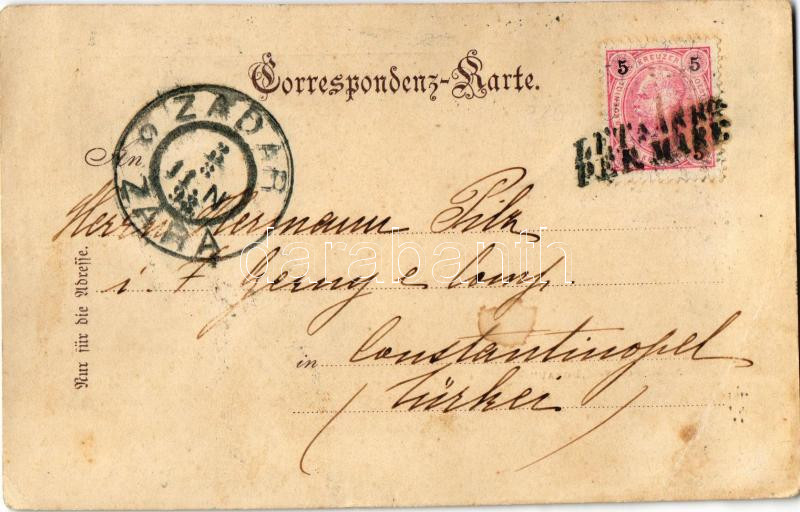 Correspondenz-Karte.
5 KREUZER 5
5
LETT. ARR.
PER MARE
ZADAR
ZARA
An
Herrn Hermann Pilz
i. F. Gerny e Comp.
in Constantinopel
(Türkei)
Nur für die Adresse.
darabanth